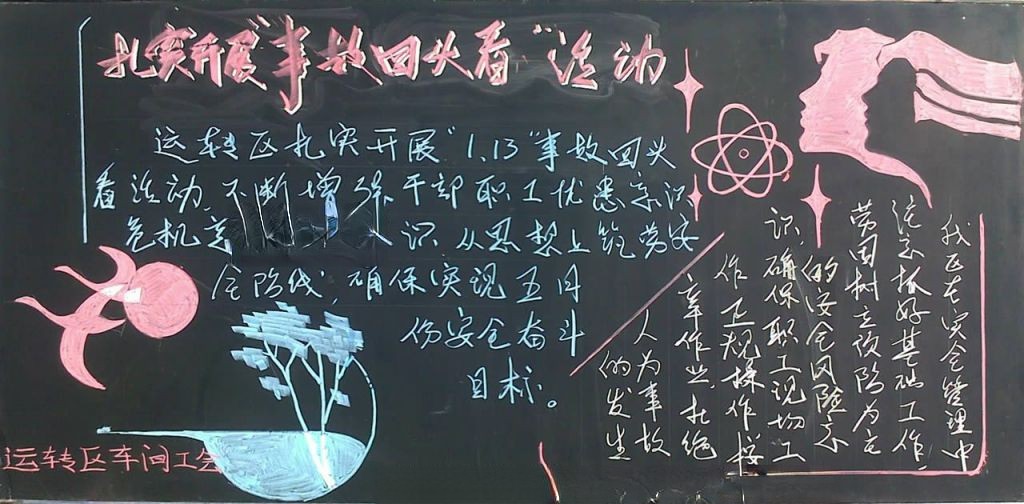 扎实开展"事故回头看"活动
运转区扎实开展"1.13"事故回头
看活动,不断增强干部职工忧患意识
危机意识,从思想上筑劳安
全防线,确保实现五月
份安全奋斗
目标。
我区在安全管理中
注意抓好基础工作,
劳固树立预防为主
的安全风险意
识,确保职工现场工
作正规操作按
章作业杜绝
人为事故
的发生
运转区车间工会